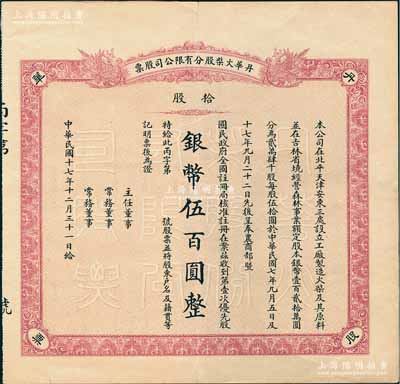 丹華火柴股分有限公司股票
拾股
本公司在北平天津安東三處設立工廠製造火柴及其原料
並在吉林省境經營森林事業額定股本銀幣壹百貳拾萬圓
分為貳萬肆千股每股伍拾圓於中華民國七年九月五日及
十七年九月二十二日先後呈奉農商部暨
國民政府全國註冊局核准註冊在案茲收到第壹次優先股
銀幣伍百圓整
特給此丙字第 號股票並將股東戶名及籍貫等
記明票後為證
主任董事
常務董事
常務董事
中華民國十七年十二月三十一日給
丙字第
號
火
柴
股
票